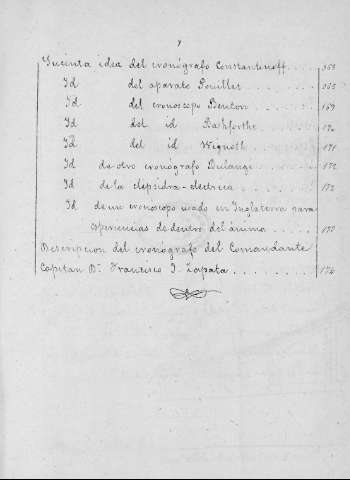 Sucinta idea del cronógrafo Constantinoff
Id del aparato Pouillet
Id del cronoscopo Benton 169
Id del id Bashforthe
Id del id Wignoll 171
Id de otro cronógrafo Boulangé 172
Id de la clepsidra-electrica 172
Id de un cronoscopo usado en Inglaterra para
esperiencias de dentro del ánima
Descripcion del cronógrafo del Comandante
Capitan Dn. Francisco J. Zapata 174